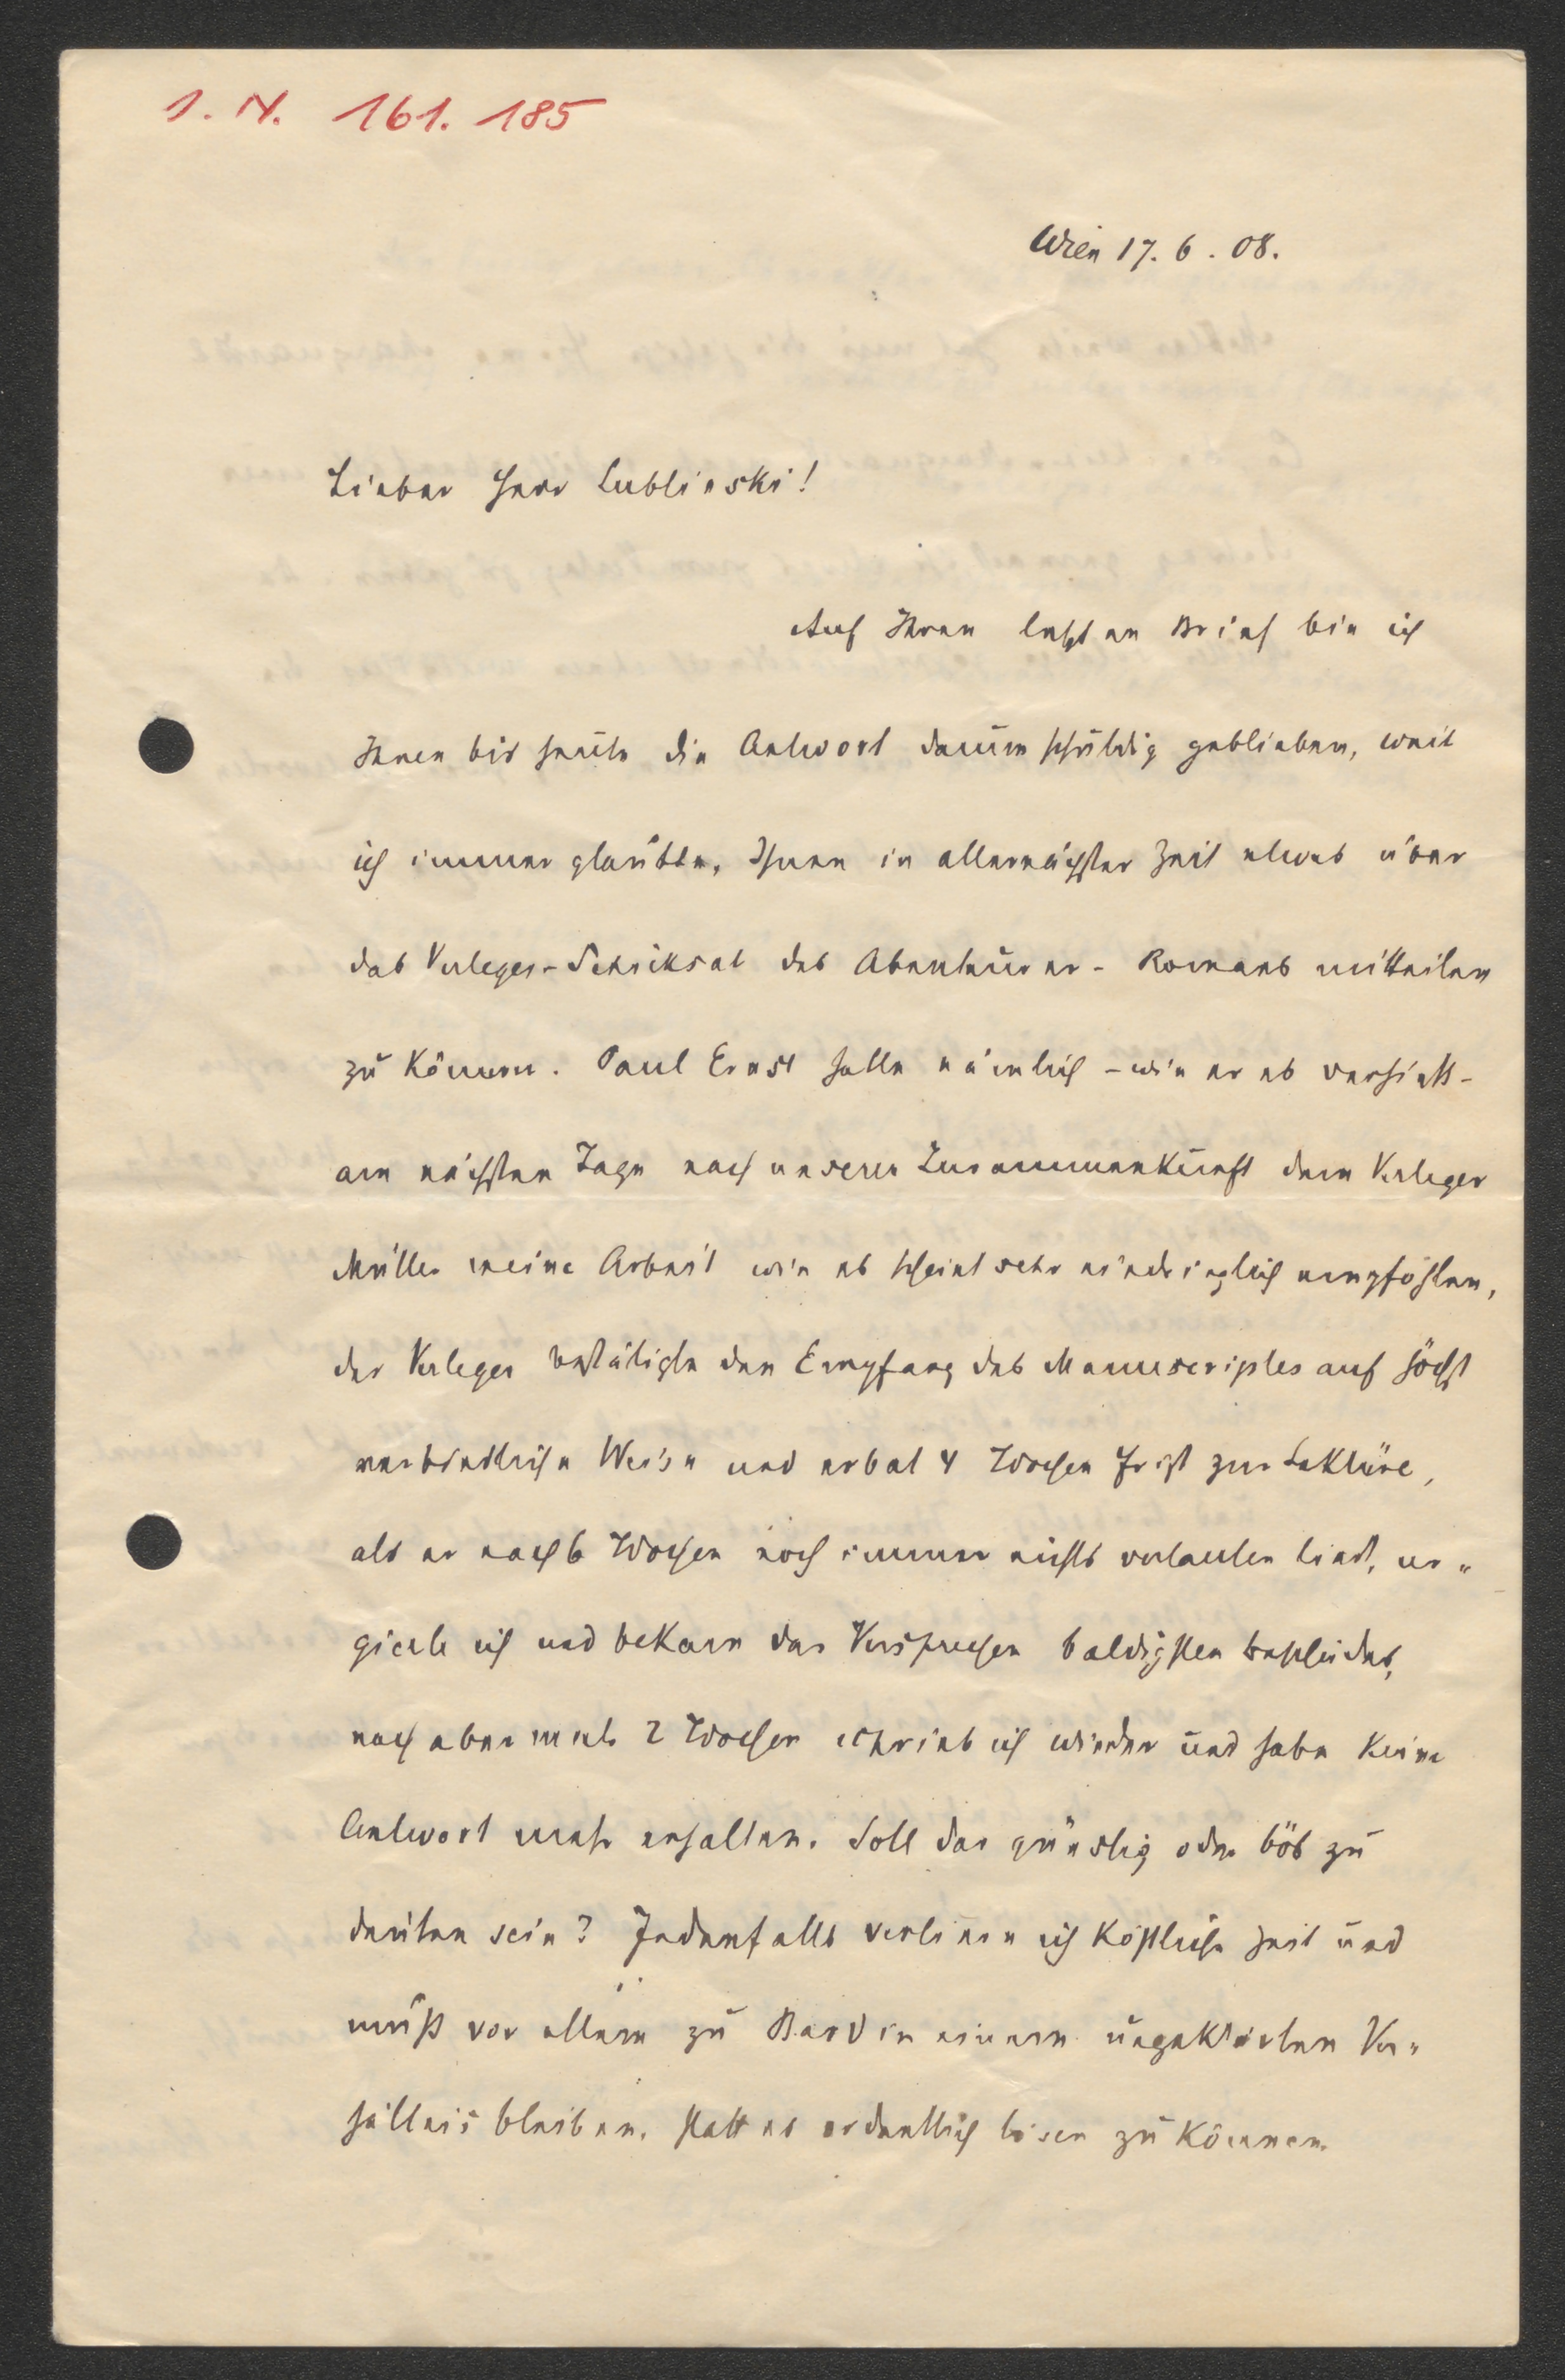 I. N. 161.185
Wien 17.6.08.
Lieber Herr Lublinski!
Auf Ihren letzten Brief bin ich
Ihnen bis heute die Antwort darum schuldig geblieben, weil
ich immer glaubte, Ihnen in allernächster Zeit etwas über
das Verleger-Schicksal des Abenteurer-Romans mitteilen
zu können. Paul Ernst hatte nämlich – wie er es verhieß –
am nächsten Tage nach unserer Zusammenkunft dem Verleger
Müller meine Arbeit wie es scheint sehr eindringlich empfohlen,
der Verleger bestätigte den Empfang des Manuscriptes auf höchst
verbindliche Weise und erbat 4 Wochen Frist zur Lektüre,
als er nach 6 Wochen noch immer nichts verlauten ließ, ur-
gierte ich und bekam das Versprechen baldigsten Bescheides,
nach abermals 2 Wochen schrieb ich wieder und habe keine
Antwort mehr erhalten. Soll das günstig oder bös zu
deuten sein? Jedenfalls verliere ich köstliche Zeit und
muß vor allem zu Bard in einem ungeklärten Ver-
hältnis bleiben, statt es ordentlich lösen zu können.